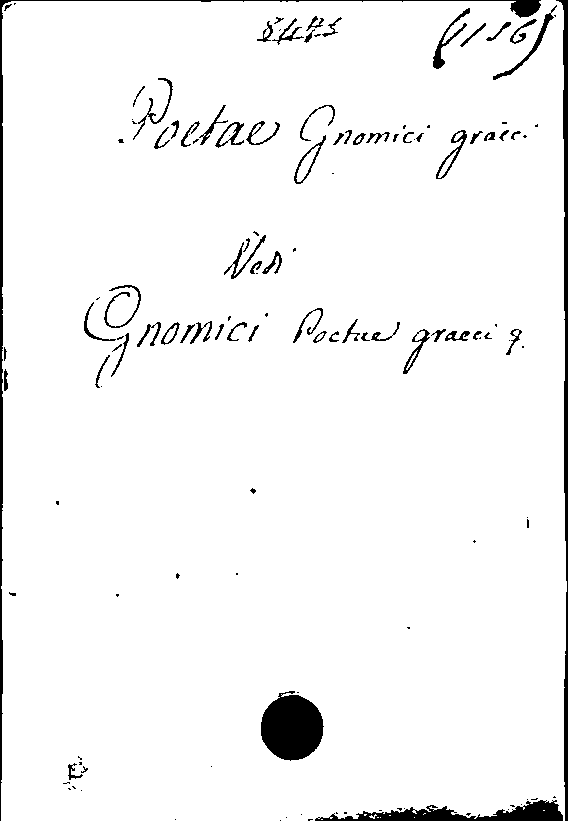 8471
(8156)
Poetae Gnomici graeci.
Vedi
Gnomici Poetae graeci q.